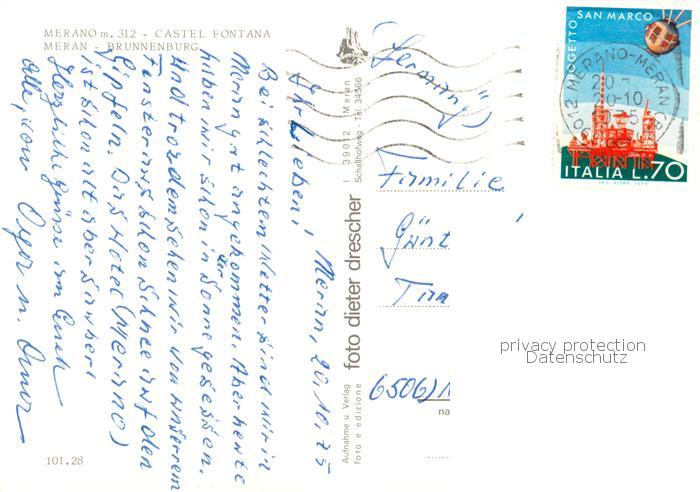 MERANO m. 312 - CASTEL FONTANA
MERAN - BRUNNENBURG
Meran, 20.10.75
Ihr Lieben!
Bei schlechtem Wetter sind wir in
Meran gut angekommen. Aber heute
haben wir schon in der Sonne gesessen.
Und trozdem sehen wir von unserem
Fenster aus schon Schnee auf den
Gipfeln. Das Hotel (Merano)
ist schon alt aber sauber!
Herzliche Grüsse an Euch
alle, von Opa u. Oma
101.28
Aufnahme u. Verlag
foto e edizione
foto dieter drescher
I 39012 Meran
Schallhofweg - Tel. 34566
(Germany)
Familie
Günt
6506)
na
PROGETTO SAN MARCO
ITALIA L.70
39012 MERANO-MERAN
20-10
privacy protection
Datenschutz